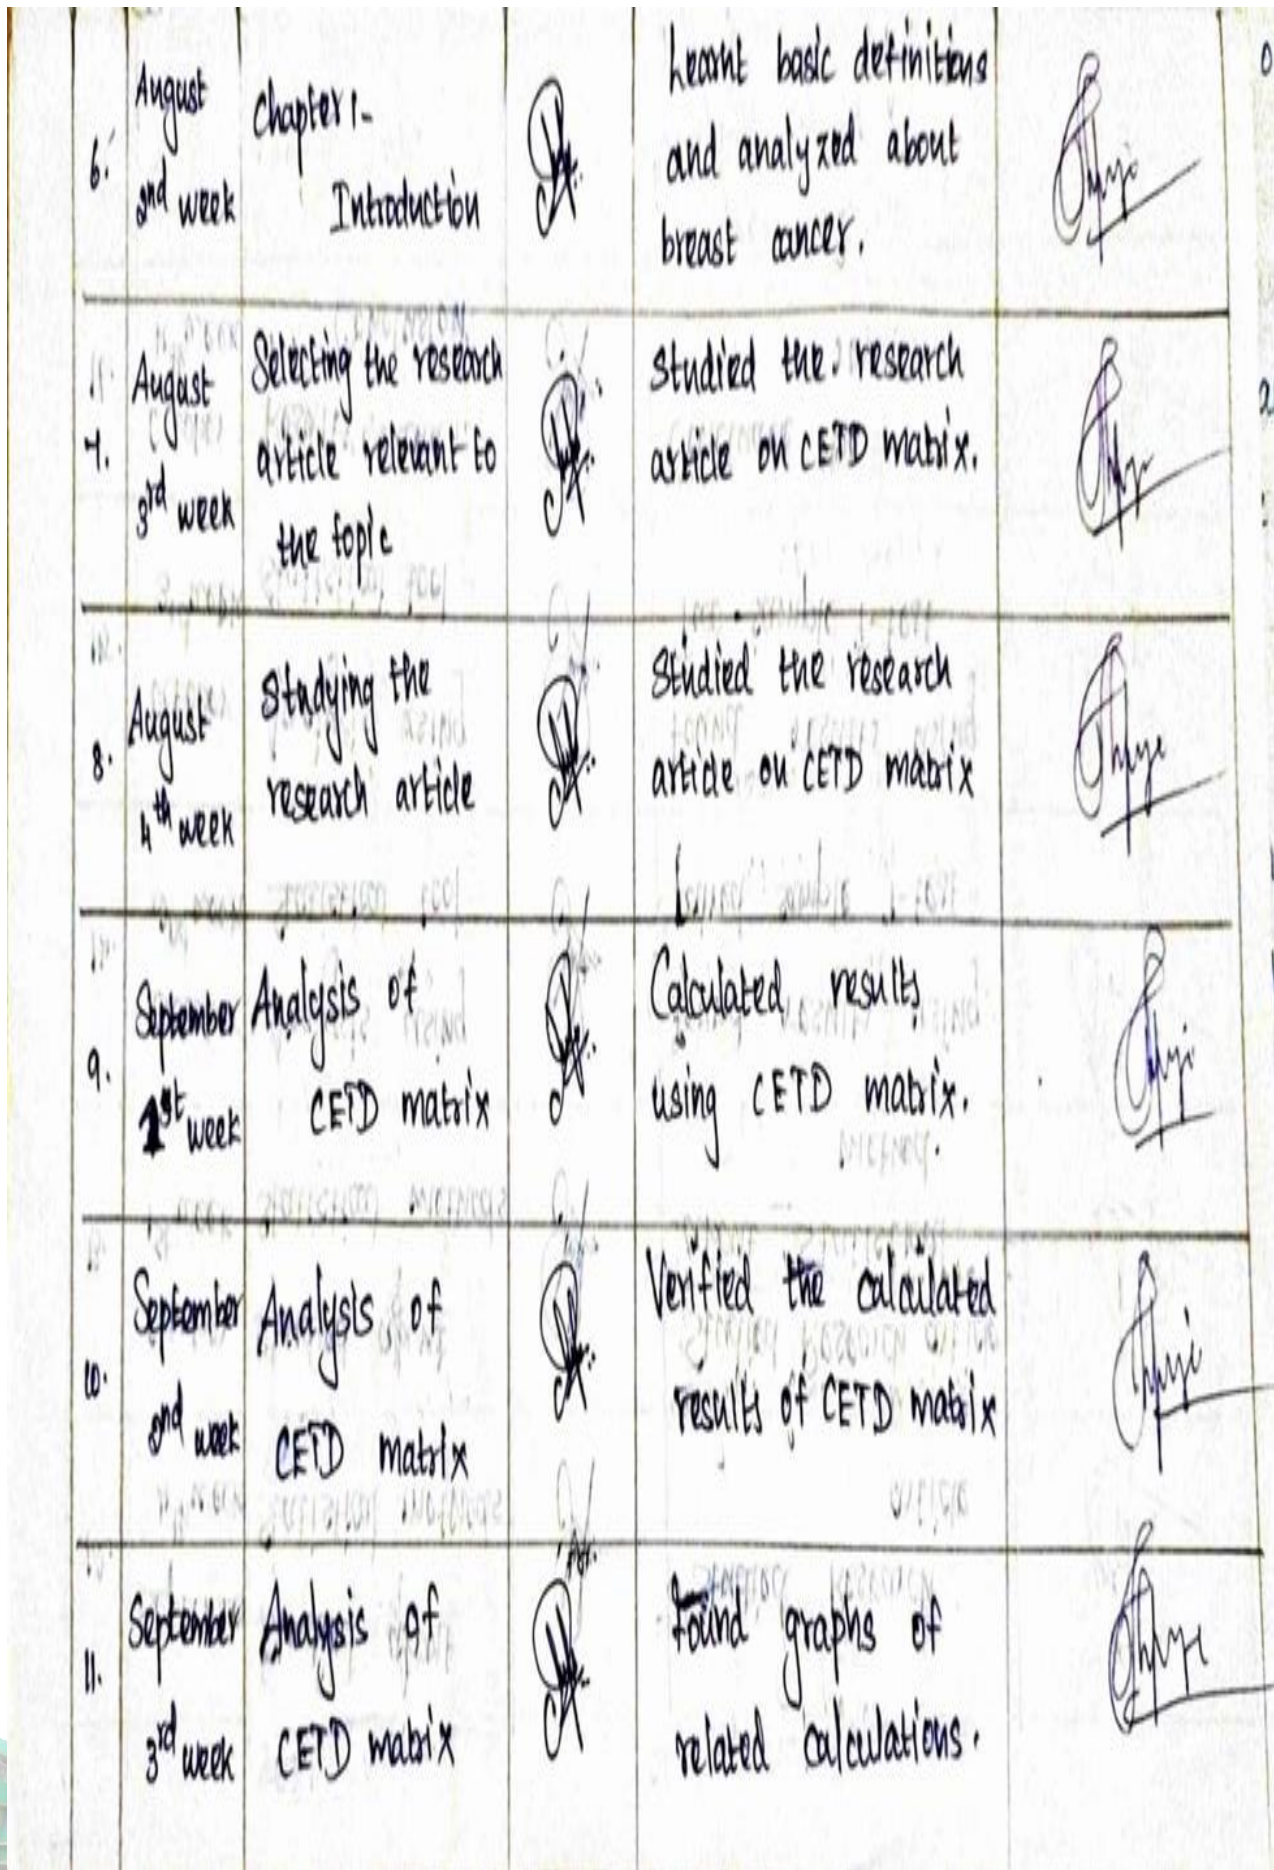 6.
August
2nd week
Chapter 1-
Introduction
Learnt basic definitions
and analyzed about
breast cancer.
7.
August
3rd week
Selecting the research
article relevant to
the topic
Studied the research
article on CETD matrix.
8.
August
4th week
Studying the
research article
Studied the research
article on CETD matrix
9.
September
1st week
Analysis of
CETD matrix
Calculated results
using CETD matrix.
10.
September
2nd week
Analysis of
CETD matrix
Verified the calculated
results of CETD matrix
11.
September
3rd week
Analysis of
CETD matrix
Found graphs of
related calculations.